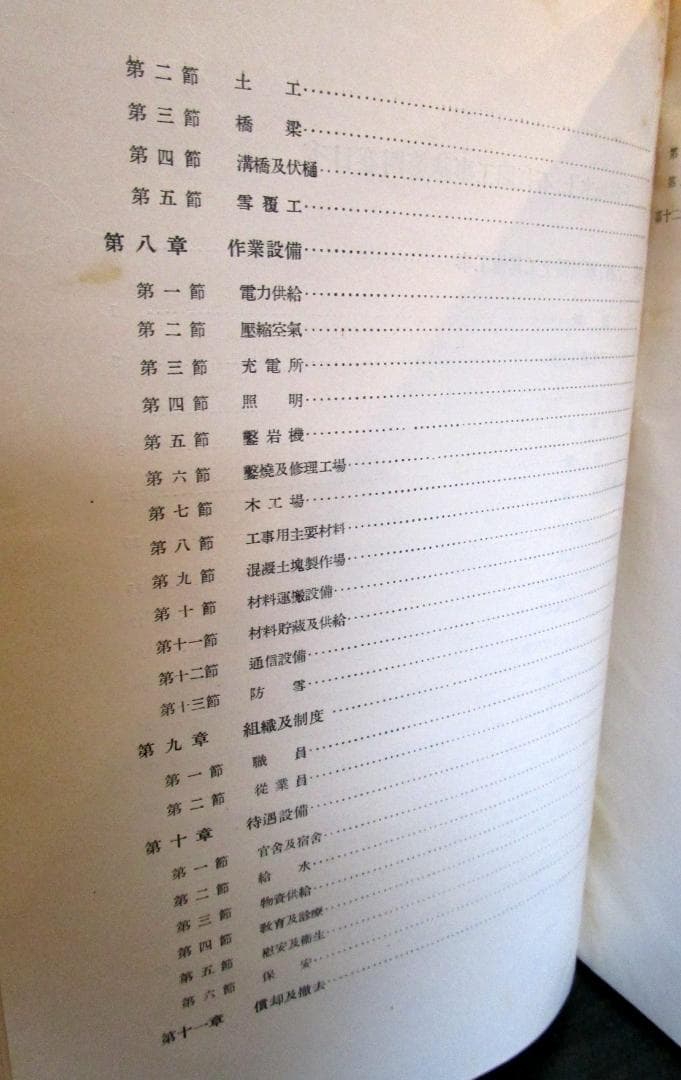 第二節 土工
第三節 橋梁
第四節 溝橋及伏樋
第五節 雪覆工
第八章 作業設備
第一節 電力供給
第二節 壓縮空氣
第三節 充電所
第四節 照明
第五節 鑿岩機
第六節 鑿燒及修理工場
第七節 木工場
第八節 工事用主要材料
第九節 混凝土塊製作場
第十節 材料運搬設備
第十一節 材料貯蔵及供給
第十二節 通信設備
第十三節 防雪
第九章 組織及制度
第一節 職員
第二節 從業員
第十章 待遇設備
第一節 官舍及宿舍
第二節 給水
第三節 物資供給
第四節 敎育及診療
第五節 慰安及衞生
第六節 保安
第十一章 償却及撤去
第
第
第十二